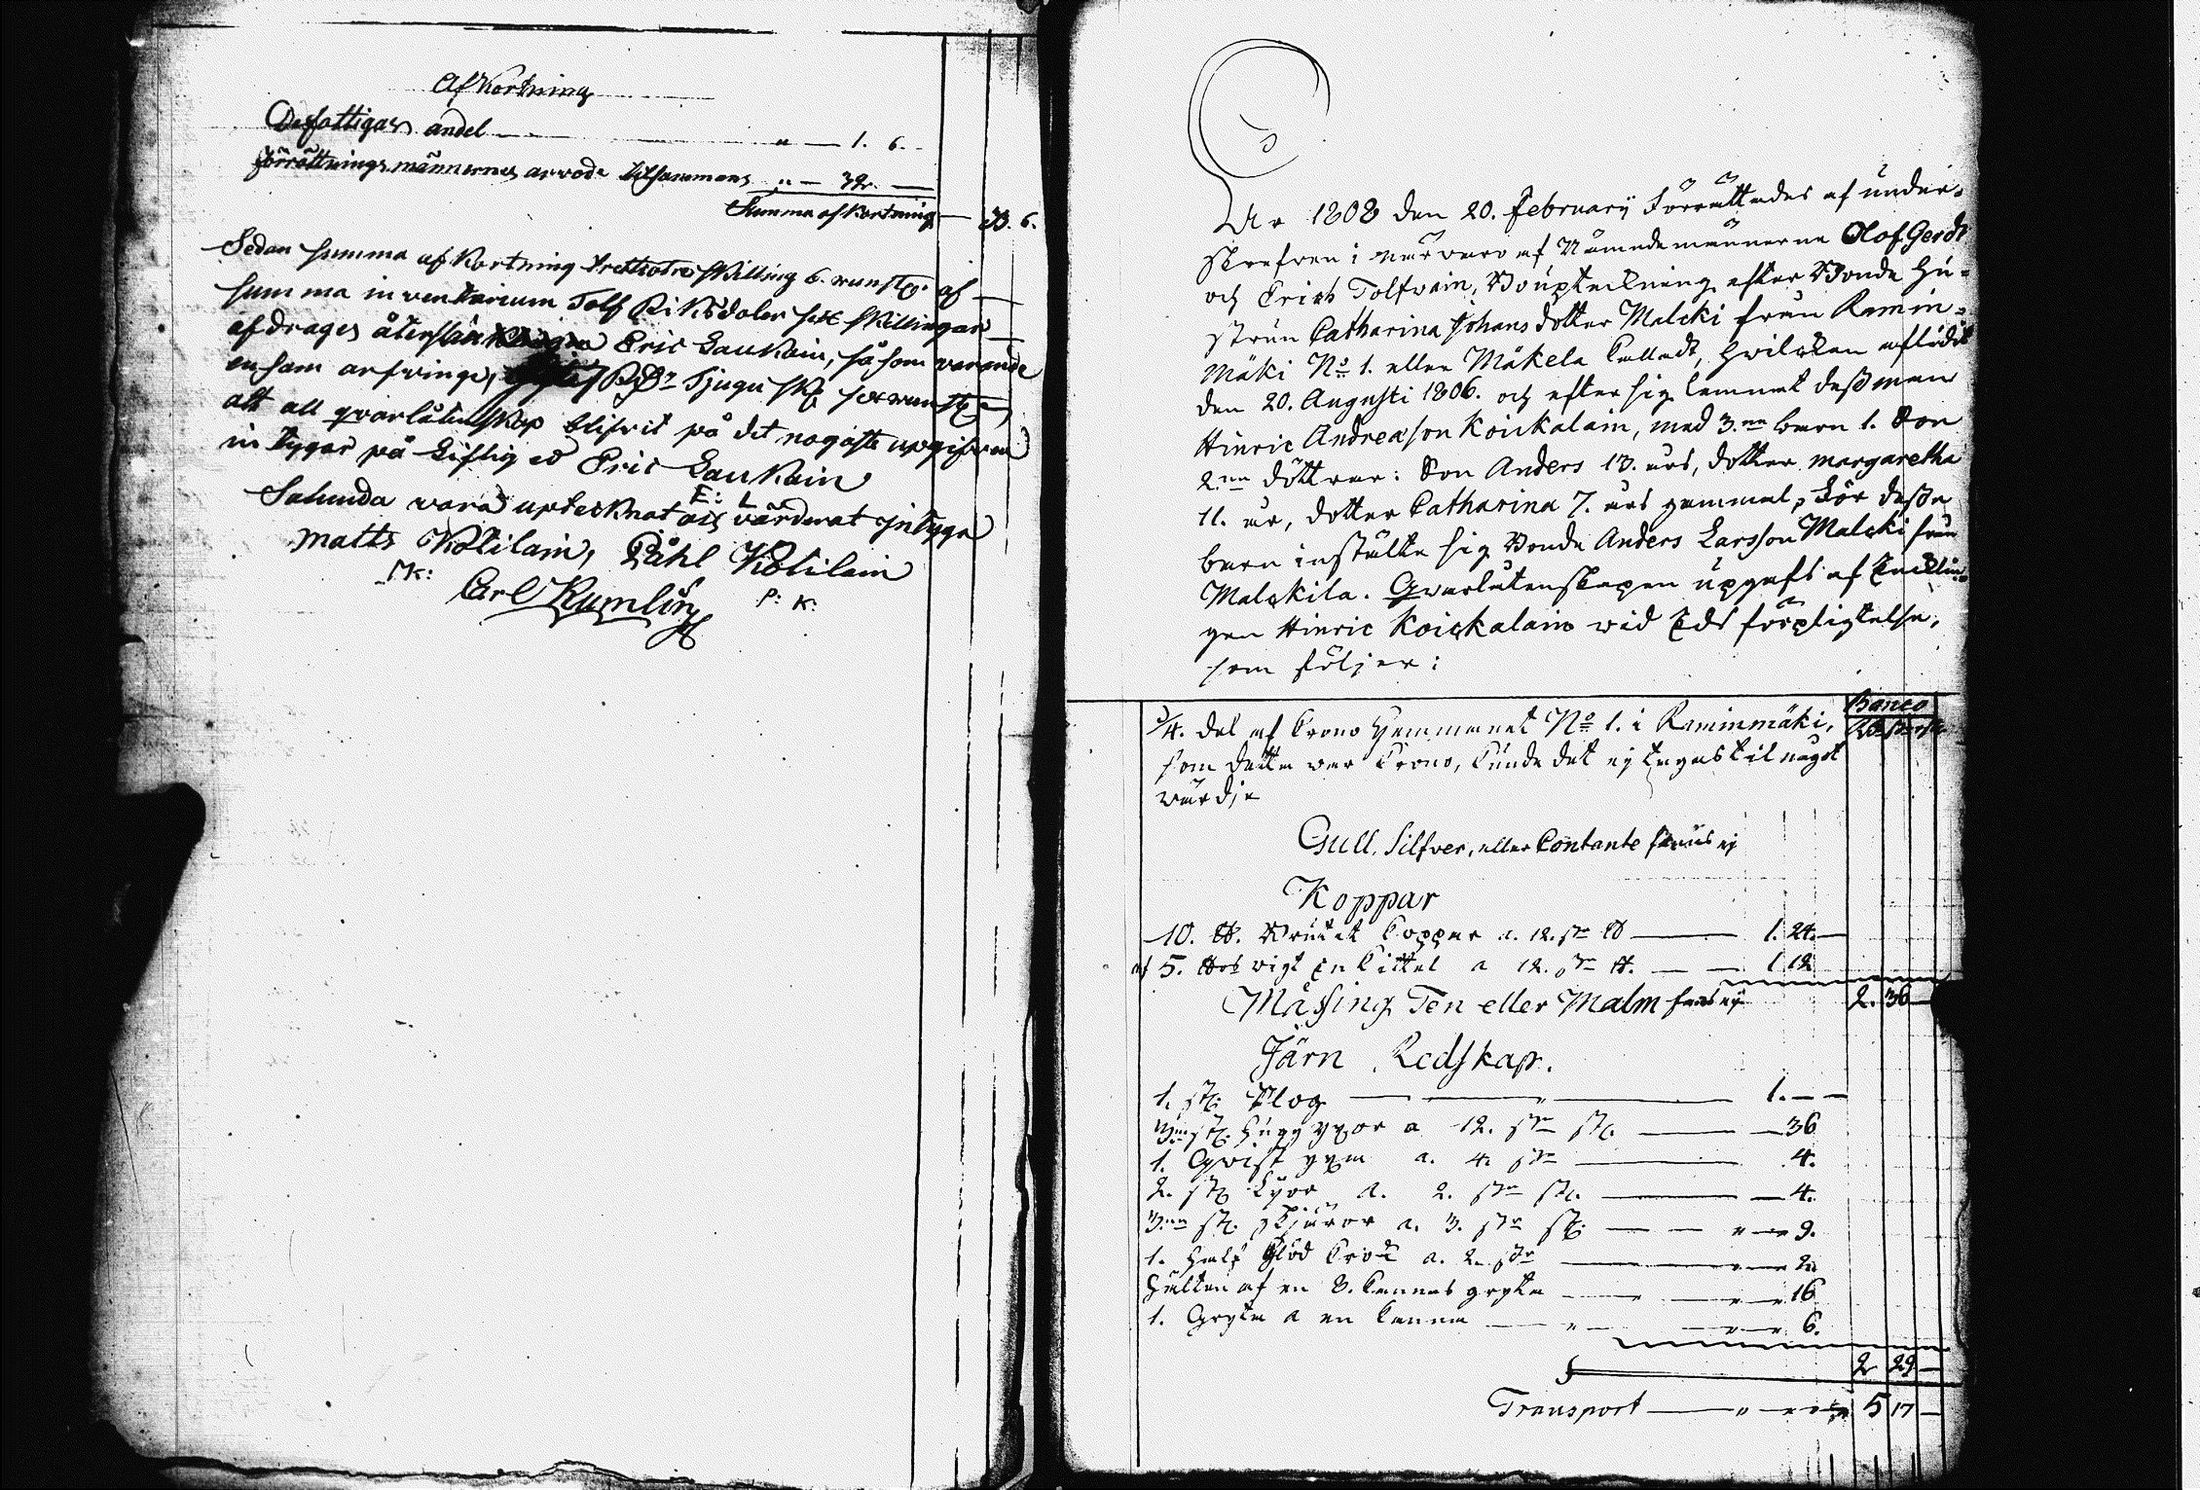 Afkortning
De fattigas andel — " — 1. 6.
Förrättnings männernes arvode tilsammans " — 32. —
Summa afkortning — 33. 6.
Sedan summa afkortning trettiotre skilling 6. runst. af
summa inventarium Tolf Riksdaler sex skillingar
afdrages återstår Eric Laukain, så som varande
ensam arfvinge, Rdr Tjugu sk sex runst.
att all qvarlåtenskap blifvit på det nogaste upgifven
intygar på Liflig ed Eric Laukain
E: L
Salunda vara uptecknat och värderat intyga
Matts Kotilain, Påhl Kotilain
MK: P: K:
Carl Rumlin
År 1808 den 20. February Förrättades af under-
skrefven i närvaro af Nämndemännerne Olof Gerdt
och Erich Tolfvain, Bouptekning efter Bonde Hu-
strun Catharina Johans dotter Malcki från Ramin-
mäki No 1. eller Mäkela kalladt, hvilcken afledit
den 20. Augusti 1806. och efter sig lemnat dess man
Hinric Andreasson Koickalain, med 3.ne barn 1. Son
2.ne döttrar: Son Anders 13. års, dotter Margaretha
11. år, dotter Catharina 7. års gammal, För dessa
barn instälte sig Bonde Anders Larsson Malcki från
Malckila. Qvarlåtenskapen upgafs af Enklin-
gen Hinric Koickalain wid Eds förpligtelse,
som följer:
Banco
3/4. del af Crono Hemmanet No 1. i Raminmäki,
som detta war Crono, kunde det ej tagas til något
wärdje
Gull, Silfver, eller Contante fans ej
Koppar
10. ℔. Brukat Coppar a. 12. sr ℔ — 1. 24. —
af 5. ℔s vigt En Kittel a 12. sr ℔. — 1 12
2. 36 —
Måssing Ten eller Malm fans ej
Järn Redskap.
1. st. Plog — 1. — —
3ne st. Hugg yxor a 12. sr st. — 36
1. Qvist yxa a. 4. sr — 4.
2. st. Lyor a. 2. sr st. — 4.
3.ne st. skjäror a. 3. sr st. — " — 9.
1. Half Glöd krok a. 2. sr — 2
Hälften af en 8. kannas gryta — " — 16
1. Gryta a en kanna — " — 6.
2 29 —
Transport — " — 5 17 —